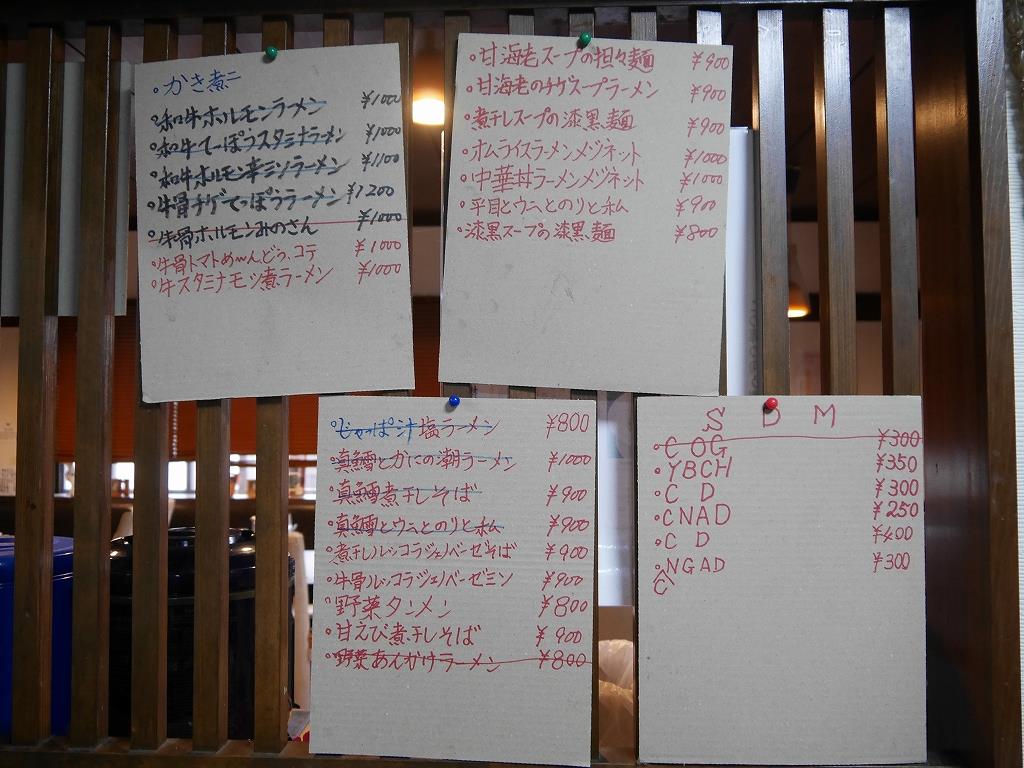 ・かき煮干
・和牛ホルモンラーメン ¥1000
・和牛てっぽうスタミナラーメン ¥1000
・和牛ホルモン辛ミソラーメン ¥1100
・牛骨チゲてっぽうラーメン ¥1200
・牛骨ホルモンみのさん ¥1000
・牛骨トマトめ〜んどっ、コテ ¥1000
・牛スタミナモツ煮ラーメン ¥1000
・甘海老スープの担々麺 ¥900
・甘海老のチゲスープラーメン ¥900
・煮干しスープの漆黒麺 ¥900
・オムライスラーメンメジネット ¥1000
・中華丼ラーメンメジネット ¥1000
・平目とウニとのりと私 ¥900
・漆黒スープの漆黒麺 ¥800
・じゃっぱ汁塩ラーメン ¥800
・真鱈とカニの潮ラーメン ¥1000
・真鱈煮干しそば ¥900
・真鱈とウニとのりと私 ¥900
・煮干しルッコラジェノベーゼそば ¥900
・牛骨ルッコラジェノベーゼミン ¥900
・野菜タンメン ¥800
・甘えび煮干しそば ¥900
・野菜あんかけラーメン ¥800
S D M
・C OG ¥300
・YBCH ¥350
・C D ¥300
・CNAD ¥250
・C D ¥400
・NGAD ¥300
C